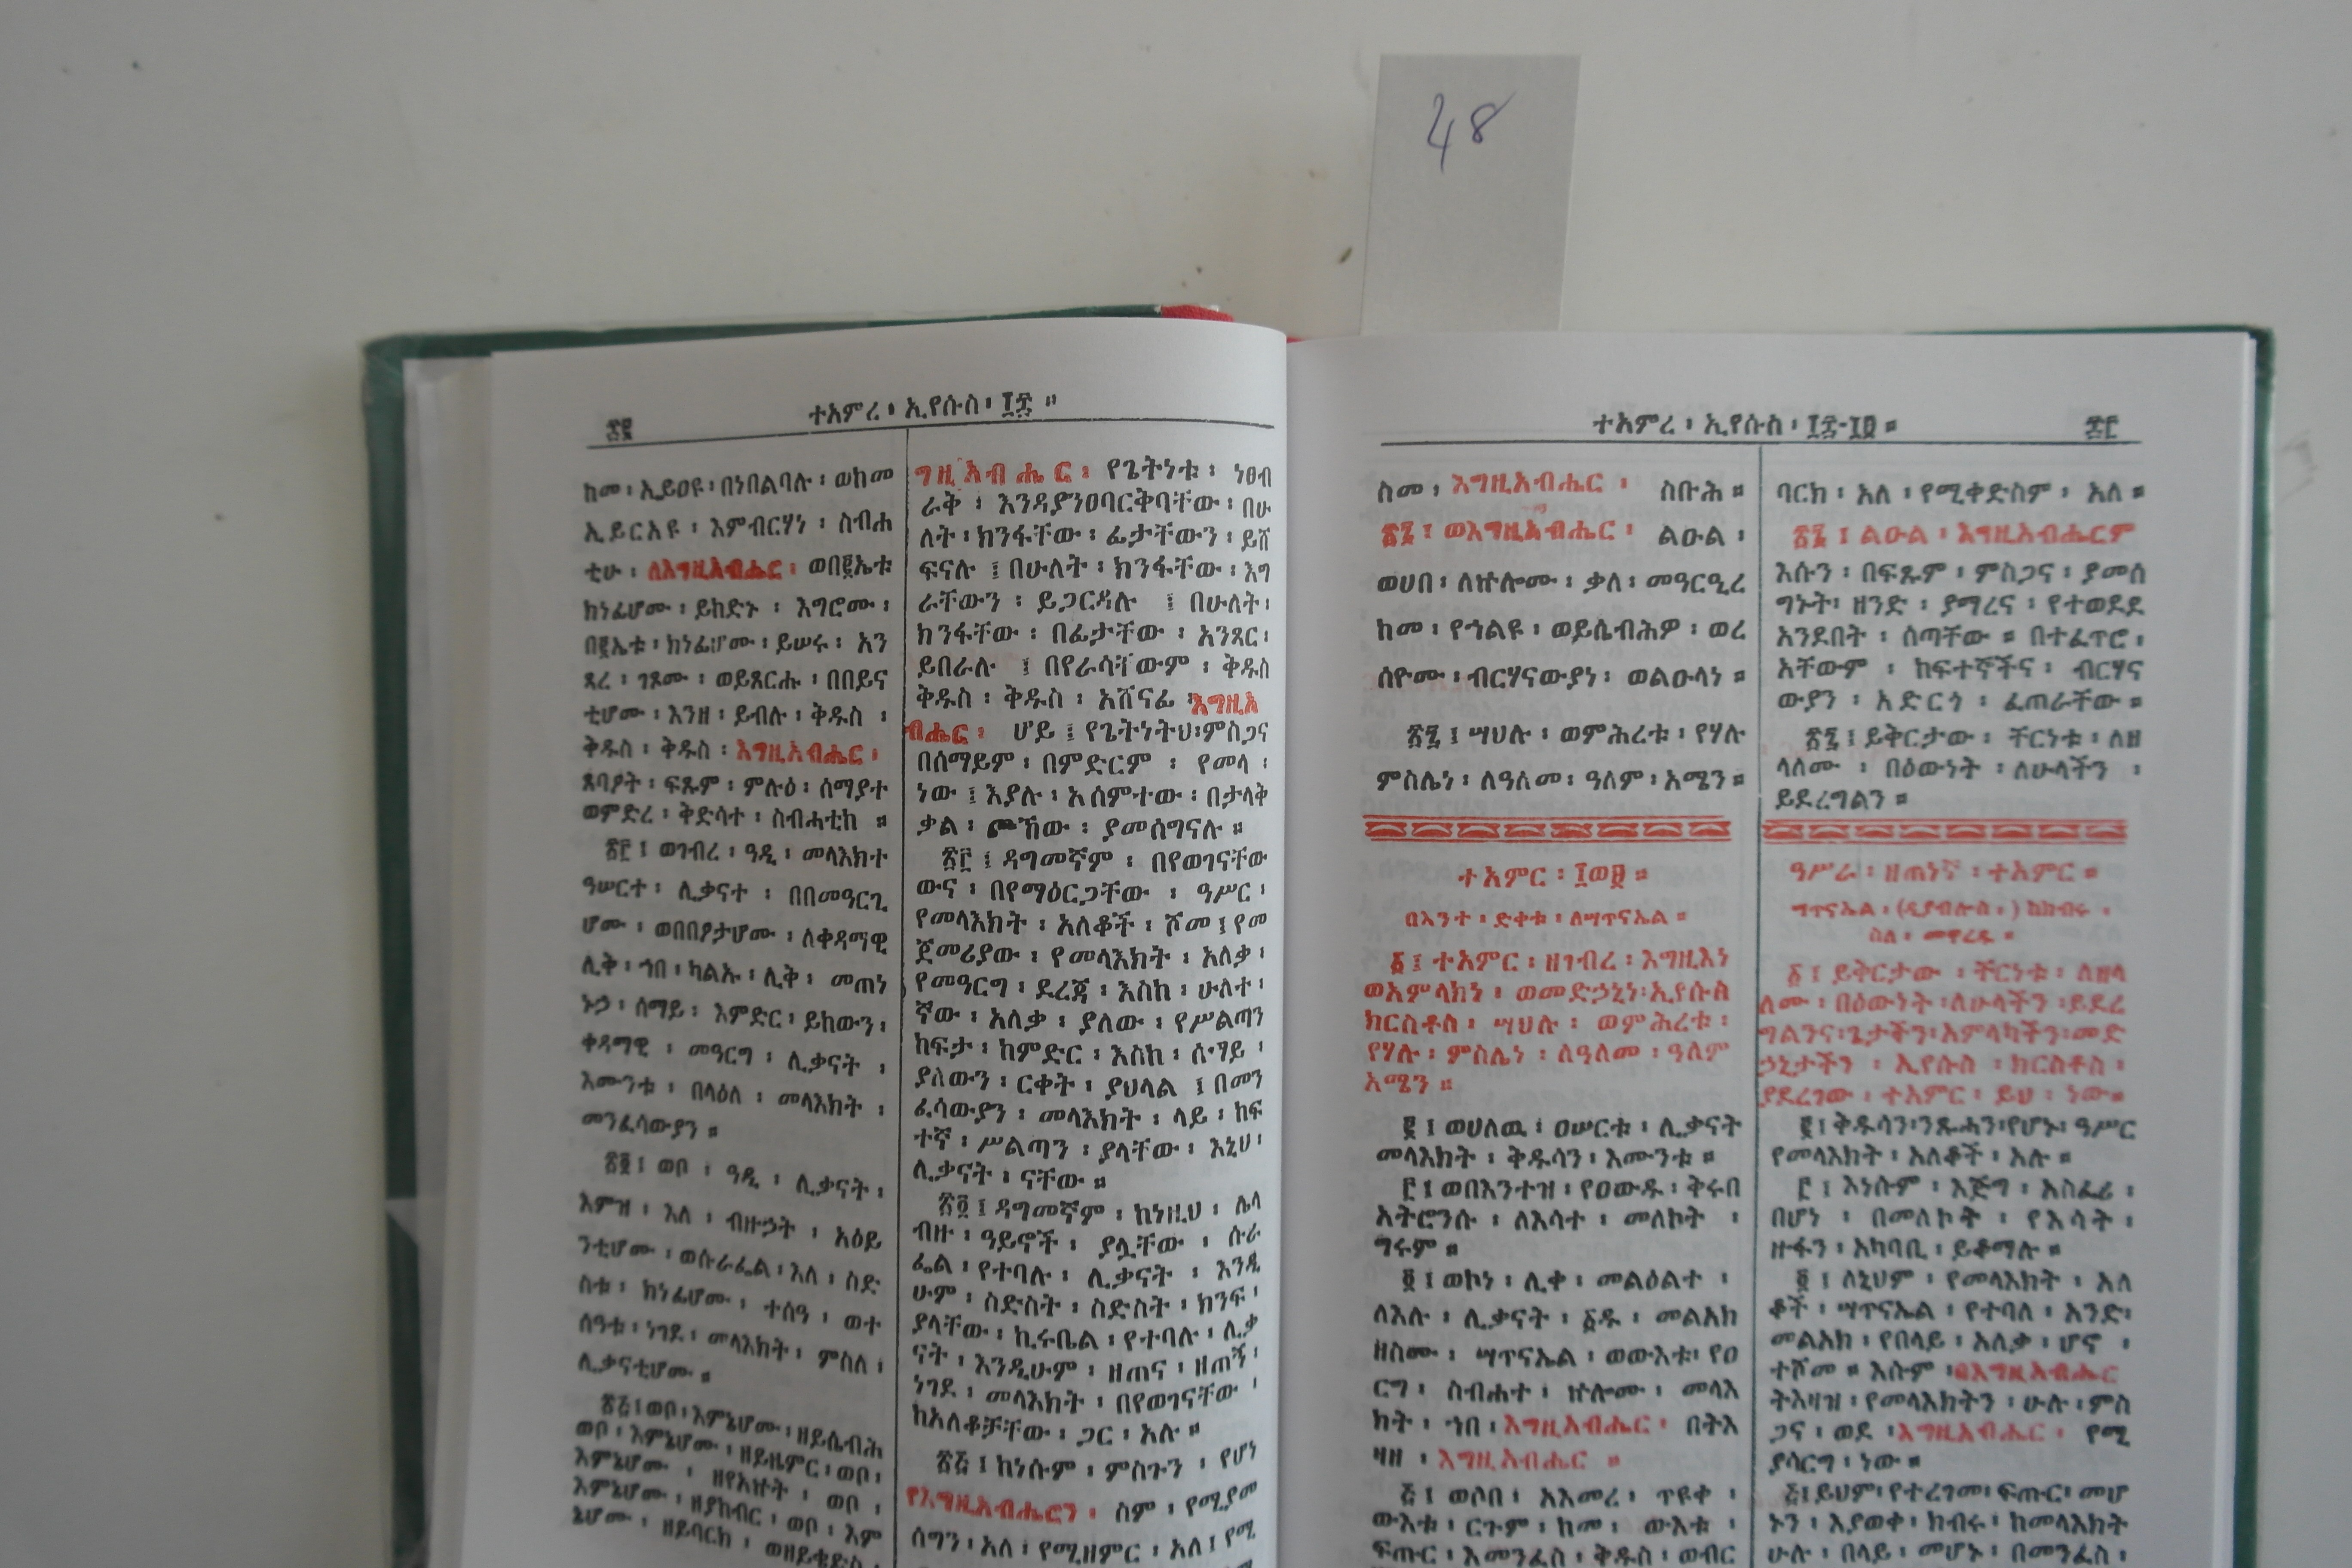 48
፷፪
ተአምረ ፡ ኢየሱስ ፡ ፲፰ ።
ከመ ፡ ኢይዐዩ ፡ በነበልባሉ ፡ ወከመ
ኢይርአዩ ፡ እምብርሃነ ፡ ስብሐ
ቲሁ ፡ ለእግዚአብሔር ፡ ወበ፪ኤቱ
ክነፊሆሙ ፡ ይከድኑ ፡ እግሮሙ ፡
በ፪ኤቱ ፡ ክነፊሆሙ ፡ ይሠሩ ፡ አን
ጻረ ፡ ገጾሙ ፡ ወይጸርሑ ፡ በበይና
ቲሆሙ ፡ እንዘ ፡ ይብሉ ፡ ቅዱስ ፡
ቅዱስ ፡ ቅዱስ ፡ እግዚአብሔር ፡
ጸባዖት ፡ ፍጹም ፡ ምሉዕ ፡ ሰማያተ
ወምድረ ፡ ቅድሳተ ፡ ስብሐቲከ ።
፳፫ ፤ ወገብረ ፡ ዓዲ ፡ መላእክተ
ዓሠርተ ፡ ሊቃናተ ፡ በበመዓርጊ
ሆሙ ፡ ወበበፆታሆሙ ፡ ለቀዳማዊ
ሊቅ ፡ ኀበ ፡ ካልኡ ፡ ሊቅ ፡ መጠነ
ኑኃ ፡ ሰማይ ፡ እምድር ፡ ይከውን ፡
ቀዳማዊ ፡ መዓርግ ፡ ሊቃናት ፡
እሙንቱ ፡ በላዕለ ፡ መላእክት ፡
መንፈሳውያን ።
፳፬ ፤ ወቦ ፡ ዓዲ ፡ ሊቃናት ፡
እምዝ ፡ እለ ፡ ብዙኃት ፡ አዕይ
ንቲሆሙ ፡ ወሱራፌል ፡ እለ ፡ ስድ
ስቱ ፡ ክነፊሆሙ ፡ ተሰዓ ፡ ወተ
ሰዓቱ ፡ ነገደ ፡ መላእክት ፡ ምስለ ፡
ሊቃናቲሆሙ ።
፳፭ ፤ ወቦ ፡ እምኔሆሙ ፡ ዘይሴብሕ
ወቦ ፡ እምኔሆሙ ፡ ዘይዜምር ፡ ወቦ ፡
እምኔሆሙ ፡ ዘየአኵት ፡ ወቦ ፡
እምኔሆሙ ፡ ዘያከብር ፡ ወቦ ፡ እም
ኔሆሙ ፡ ዘይባርክ ፡ ወዘይቄድስ ፡
ግዚአብሔር ፡ የጌትነቱ ፡ ነፀብ
ራቅ ፡ እንዳያንፀባርቅባቸው ፡ በሁ
ለት ፡ ክንፋቸው ፡ ፊታቸውን ፡ ይሸ
ፍናሉ ፤ በሁለት ፡ ክንፋቸው ፡ እግ
ራቸውን ፡ ይጋርዳሉ ፤ በሁለት ፡
ክንፋቸው ፡ በፊታቸው ፡ አንጻር ፡
ይበራሉ ፤ በየራሳቸውም ፡ ቅዱስ
ቅዱስ ፡ ቅዱስ ፡ አሸናፊ ፡ እግዚአ
ብሔር ፡ ሆይ ፤ የጌትነትህ ፡ ምስጋና
በሰማይም ፡ በምድርም ፡ የመላ ፡
ነው ፤ እያሉ ፡ አሰምተው ፡ በታላቅ
ቃል ፡ ጮኸው ፡ ያመሰግናሉ ።
፳፫ ፤ ዳግመኛም ፡ በየወገናቸው
ውና ፡ በየማዕርጋቸው ፡ ዓሥር ፡
የመላእክት ፡ አለቆች ፡ ሾመ ፤ የመ
ጀመሪያው ፡ የመላእክት ፡ አለቃ ፡
የመዓርግ ፡ ደረጃ ፡ እስከ ፡ ሁለተ ፡
ኛው ፡ አለቃ ፡ ያለው ፡ የሥልጣን
ከፍታ ፡ ከምድር ፡ እስከ ፡ ሰማይ ፡
ያለውን ፡ ርቀት ፡ ያህላል ፤ በመን
ፈሳውያን ፡ መላእክት ፡ ላይ ፡ ከፍ
ተኛ ፡ ሥልጣን ፡ ያላቸው ፡ እኒህ ፡
ሊቃናት ፡ ናቸው ።
፳፬ ፤ ዳግመኛም ፡ ከነዚህ ፡ ሌላ
ብዙ ፡ ዓይኖች ፡ ያሏቸው ፡ ሱራ
ፌል ፡ የተባሉ ፡ ሊቃናት ፡ እንዲ
ሁም ፡ ስድስት ፡ ስድስት ፡ ክንፍ ፡
ያላቸው ፡ ኪሩቤል ፡ የተባሉ ፡ ሊቃ
ናት ፡ እንዲሁም ፡ ዘጠና ፡ ዘጠኝ ፡
ነገደ ፡ መላእክት ፡ በየወገናቸው ፡
ከአለቆቻቸው ፡ ጋር ፡ አሉ ።
፳፭ ፤ ከነሱም ፡ ምስጉን ፡ የሆነ
የእግዚአብሔርን ፡ ስም ፡ የሚያመ
ሰግን ፡ አለ ፡ የሚዘምር ፡ አለ ፤ የሚ
ተአምረ ፡ ኢየሱስ ፡ ፲፰-፲፱ ።
፷፫
ስመ ፡ እግዚአብሔር ፡ ስቡሕ ።
፳፮ ፤ ወእግዚአብሔር ፡ ልዑል ፡
ወሀበ ፡ ለኵሎሙ ፡ ቃለ ፡ መዓርዒረ
ከመ ፡ የኀልዩ ፡ ወይሴብሕዎ ፡ ወረ
ሰዮሙ ፡ ብርሃናውያነ ፡ ወልዑላነ ።
፳፯ ፤ ሣህሉ ፡ ወምሕረቱ ፡ የሃሉ
ምስሌነ ፡ ለዓለመ ፡ ዓለም ፡ አሜን ።
ተአምር ፡ ፲ወ፱ ።
በእንተ ፡ ድቀቱ ፡ ለሣጥናኤል ።
፩ ፤ ተአምር ፡ ዘገብረ ፡ እግዚእነ
ወአምላክነ ፡ ወመድኃኒነ ፡ ኢየሱስ
ክርስቶስ ፡ ሣህሉ ፡ ወምሕረቱ ፡
የሃሉ ፡ ምስሌነ ፡ ለዓለመ ፡ ዓለም
አሜን ።
፪ ፤ ወሀለዉ ፡ ዐሠርቱ ፡ ሊቃናት
መላእክት ፡ ቅዱሳን ፡ እሙንቱ ።
፫ ፤ ወበእንተዝ ፡ የዐውዱ ፡ ቅሩበ
አትሮንሱ ፡ ለእሳተ ፡ መለኮት ፡
ግሩም ።
፬ ፤ ወኮነ ፡ ሊቀ ፡ መልዕልተ ፡
ለእሉ ፡ ሊቃናት ፡ ፩ዱ ፡ መልአክ
ዘስሙ ፡ ሣጥናኤል ፡ ወውእቱ ፡ የዐ
ርግ ፡ ስብሐተ ፡ ኵሎሙ ፡ መላእ
ክት ፡ ኀበ ፡ እግዚአብሔር ፡ በትእ
ዛዘ ፡ እግዚአብሔር ።
፭ ፤ ወሶበ ፡ አእመረ ፡ ጥዩቀ ፡
ውእቱ ፡ ርጉም ፡ ከመ ፡ ውእቱ ፡
ፍጡር ፡ እመንፈስ ፡ ቅዱስ ፡ ወብር
ባርክ ፡ አለ ፡ የሚቀድስም ፡ አለ ።
፳፮ ፤ ልዑል ፡ እግዚአብሔርም
እሱን ፡ በፍጹም ፡ ምስጋና ፡ ያመሰ
ግኑት ፡ ዘንድ ፡ ያማረና ፡ የተወደደ
አንደበት ፡ ሰጣቸው ። በተፈጥሮ ፡
አቸውም ፡ ከፍተኞችና ፡ ብርሃና
ውያን ፡ አድርጎ ፡ ፈጠራቸው ።
፳፯ ፤ ይቅርታው ፡ ቸርነቱ ፡ ለዘ
ላለሙ ፡ በዕውነት ፡ ለሁላችን ፡
ይደረግልን ።
ዓሥራ ፡ ዘጠነኛ ፡ ተአምር ።
ሣጥናኤል ፡ (ዲያብሎስ ፡ ) ከክብሩ ፡
ስለ ፡ መዋረዱ ።
፩ ፤ ይቅርታው ፡ ቸርነቱ ፡ ለዘላ
ለሙ ፡ በዕውነት ፡ ለሁላችን ፡ ይደረ
ግልንና ፡ ጌታችን ፡ አምላካችን ፡ መድ
ኃኒታችን ፡ ኢየሱስ ፡ ክርስቶስ ፡
ያደረገው ፡ ተአምር ፡ ይህ ፡ ነው ።
፪ ፤ ቅዱሳን ፡ ንጹሓን ፡ የሆኑ ፡ ዓሥር
የመላእክት ፡ አለቆች ፡ አሉ ።
፫ ፤ እነሱም ፡ እጅግ ፡ አስፈሪ ፡
በሆነ ፡ በመለኮት ፡ የእሳት ፡
ዙፋን ፡ አካባቢ ፡ ይቆማሉ ።
፬ ፤ ለኒህም ፡ የመላእክት ፡ አለ
ቆች ፡ ሣጥናኤል ፡ የተባለ ፡ አንድ ፡
መልአክ ፡ የበላይ ፡ አለቃ ፡ ሆኖ ፡
ተሾመ ። እሱም ፡ በእግዚአብሔር
ትእዛዝ ፡ የመላእክትን ፡ ሁሉ ፡ ምስ
ጋና ፡ ወደ ፡ እግዚአብሔር ፡ የሚ
ያሳርግ ፡ ነው ።
፭ ፤ ይህም ፡ የተረገመ ፡ ፍጡር ፡ መሆ
ኑን ፡ እያወቀ ፡ ክብሩ ፡ ከመላእክት
ሁሉ ፡ በላይ ፡ መሆኑ ፡ በመንፈስ ፡